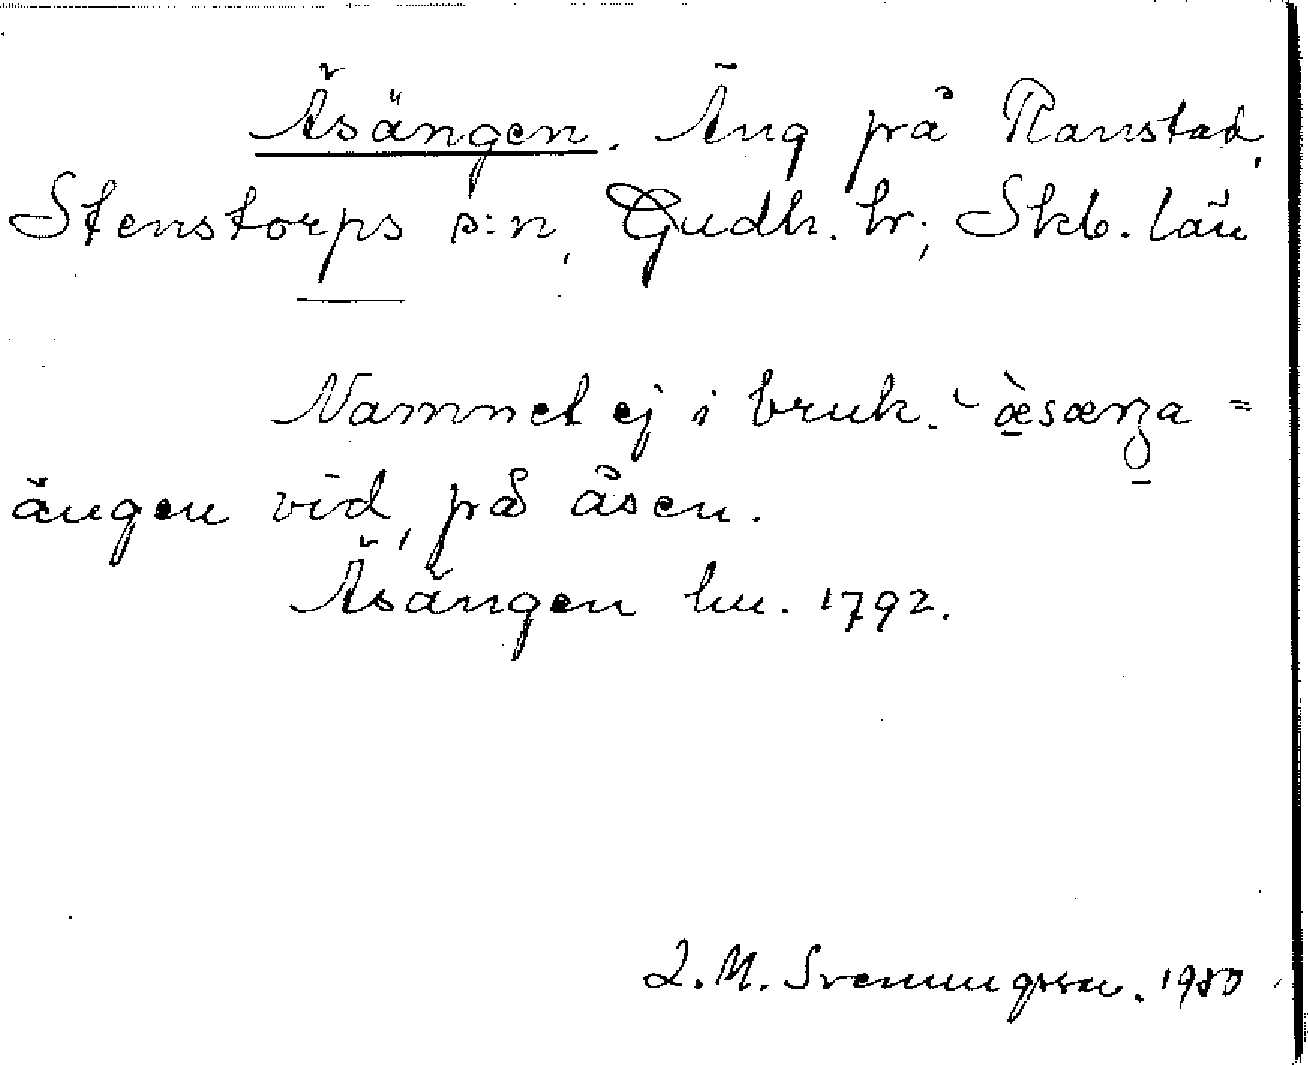 Åsängen. Äng på Ranstad,
Stenstorps s:n, Gudh. hr; Skb. län
Namnet ej i bruk. =
ängen vid, på åsen.
Åsängen hu. 1792.
L. M. Svenungsson. 1980